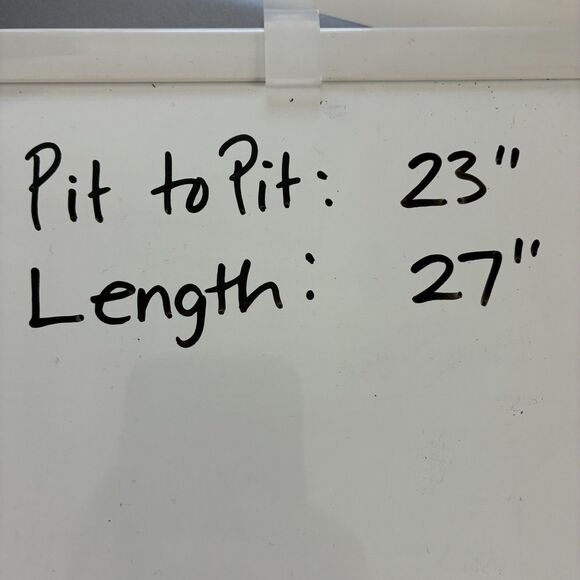 Pit to Pit: 23"
Length: 27"